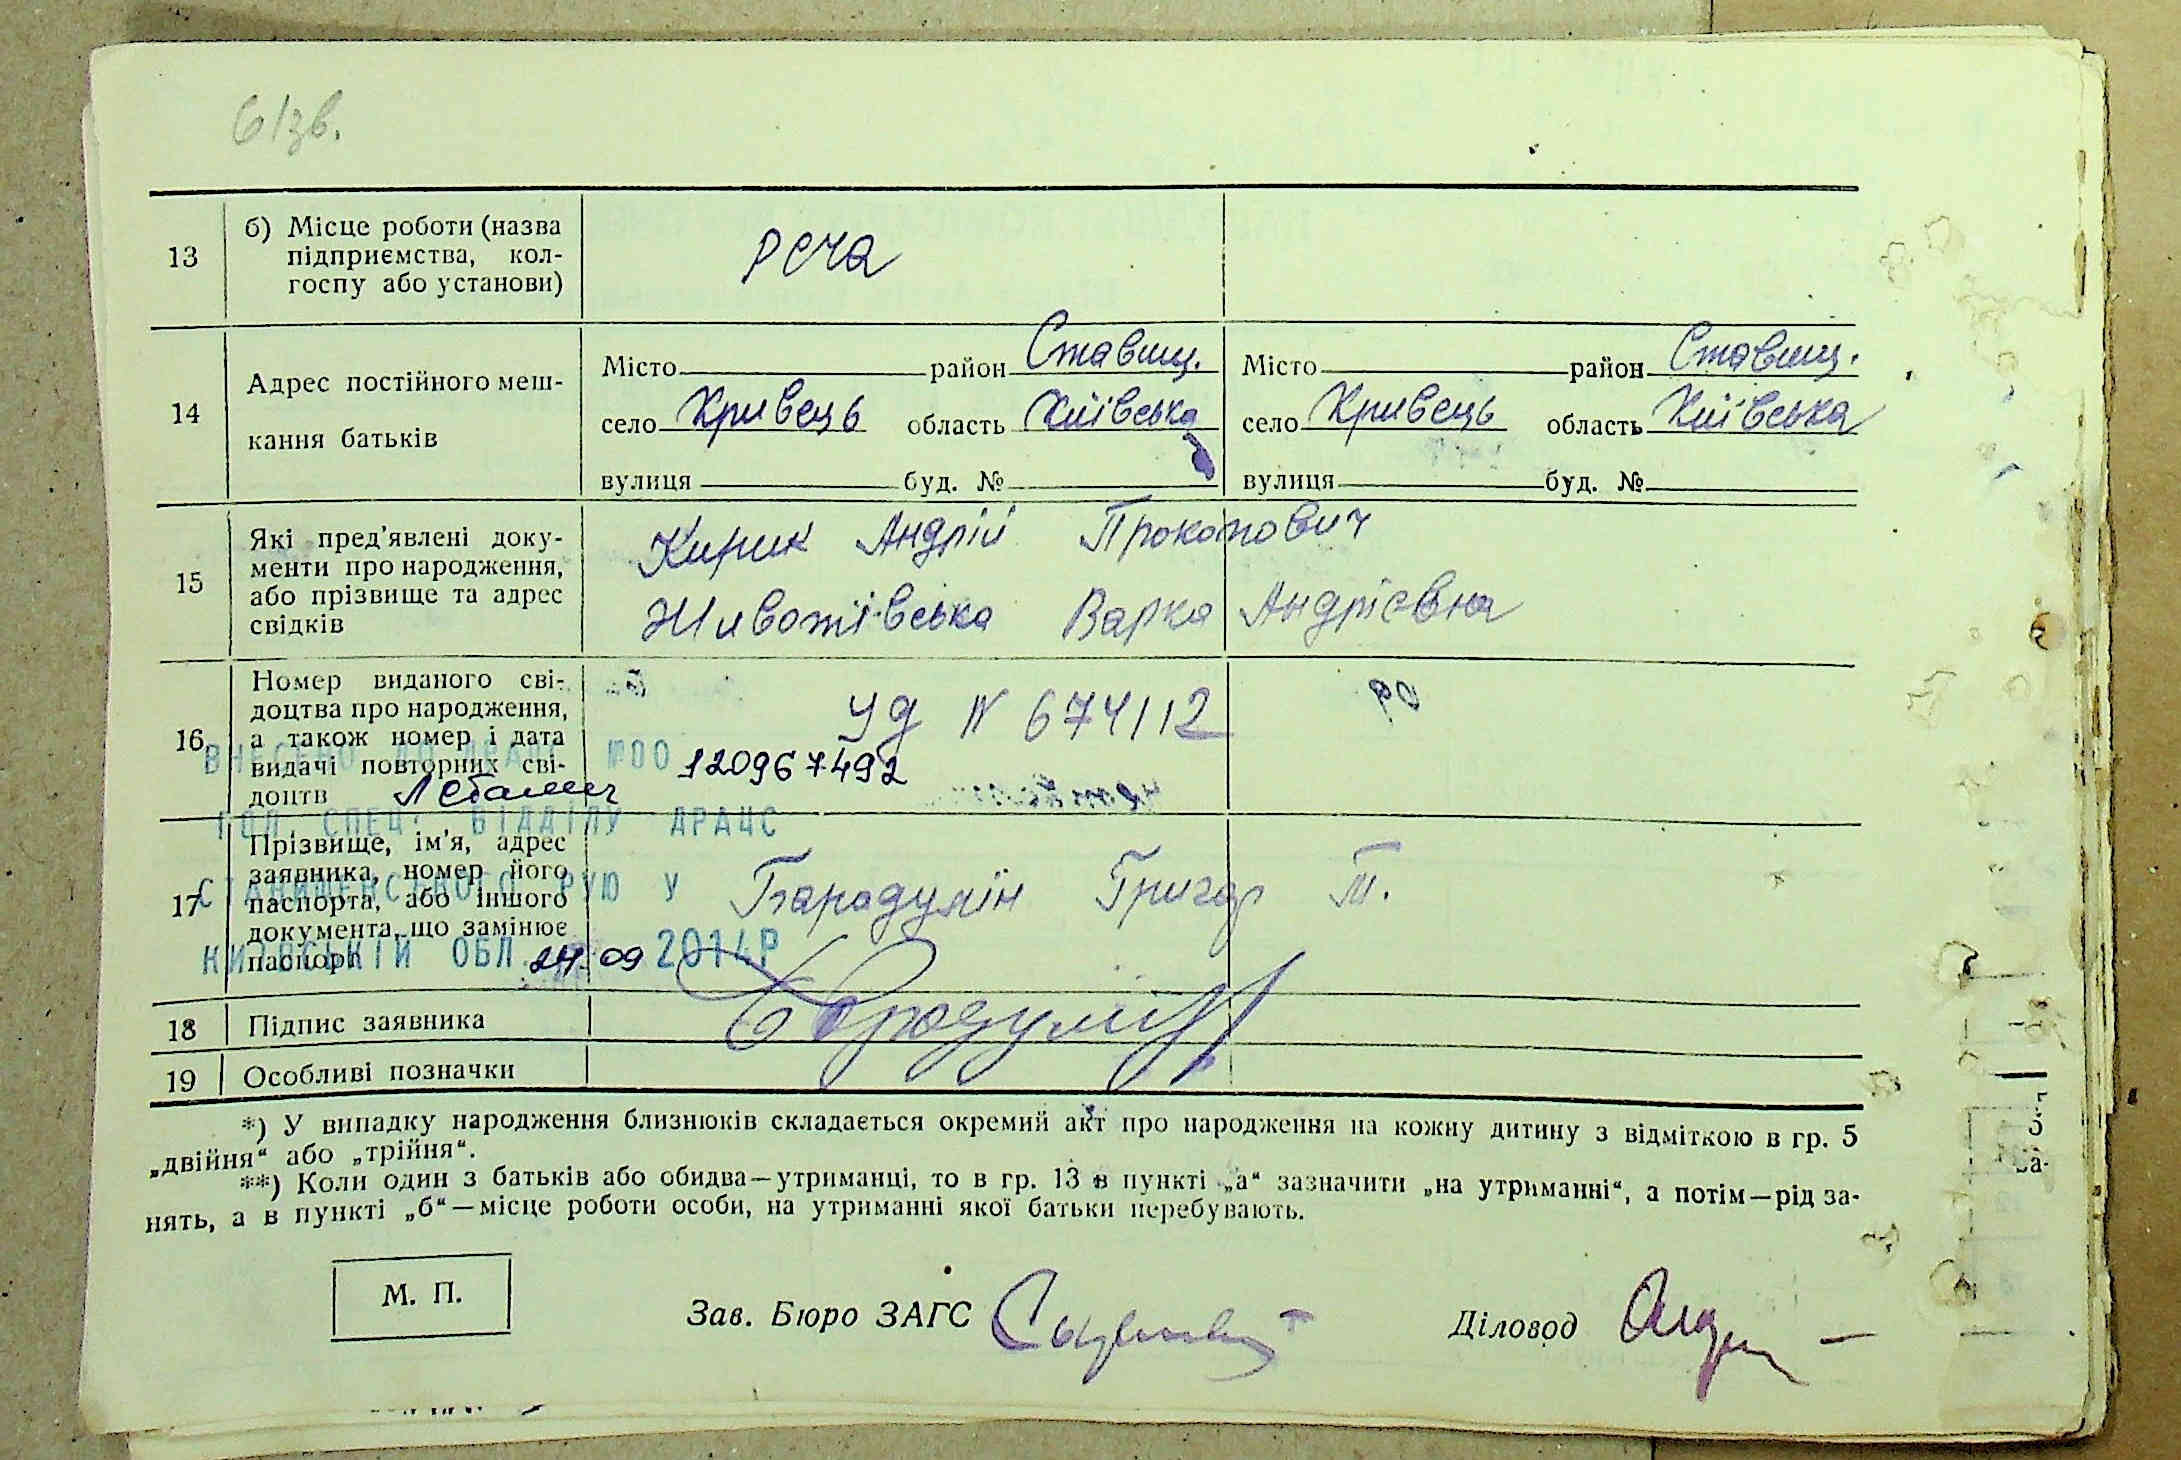 61зв.
13
б) Місце роботи (назва
підприємства, кол-
госпу або установи)
РСЧА
14
Адрес постійного меш-
кання батьків
Місто район Ставищ.
село Кривець область Київська
вулиця буд. №
Місто район Ставищ.
село Кривець область Київська
вулиця буд. №
15
Які пред'явлені доку-
менти про народження,
або прізвище та адрес
свідків
Кирик Андрій Прокопович
Животівська Варка Андрієвна
16
Номер виданого сві-
доцтва про народження,
а також номер і дата
видачі повторних сві-
доцтв
УД № 674112
ВНЕСЕНО ДО ДРАЦС №00 120967492
ГОЛ СПЕЦ. ВІДДІЛУ ДРАЦС
СТАВИЩЕНСЬКОГО РУЮ У
КИЇВСЬКІЙ ОБЛ 24.09 2014Р
17
Прізвище, ім'я, адрес
заявника, номер його
паспорта, або іншого
документа, що замінює
паспорт
Барадулін Григор Т.
18
Підпис заявника
Бородулін
19
Особливі позначки
*) У випадку народження близнюків складається окремий акт про народження на кожну дитину з відміткою в гр. 5
„двійня“ або „трійня“.
**) Коли один з батьків або обидва—утриманці, то в гр. 13 в пункті „а“ зазначити „на утриманні“, а потім—рід за-
нять, а в пункті „б“—місце роботи особи, на утриманні якої батьки перебувають.
М. П.
Зав. Бюро ЗАГС
Діловод